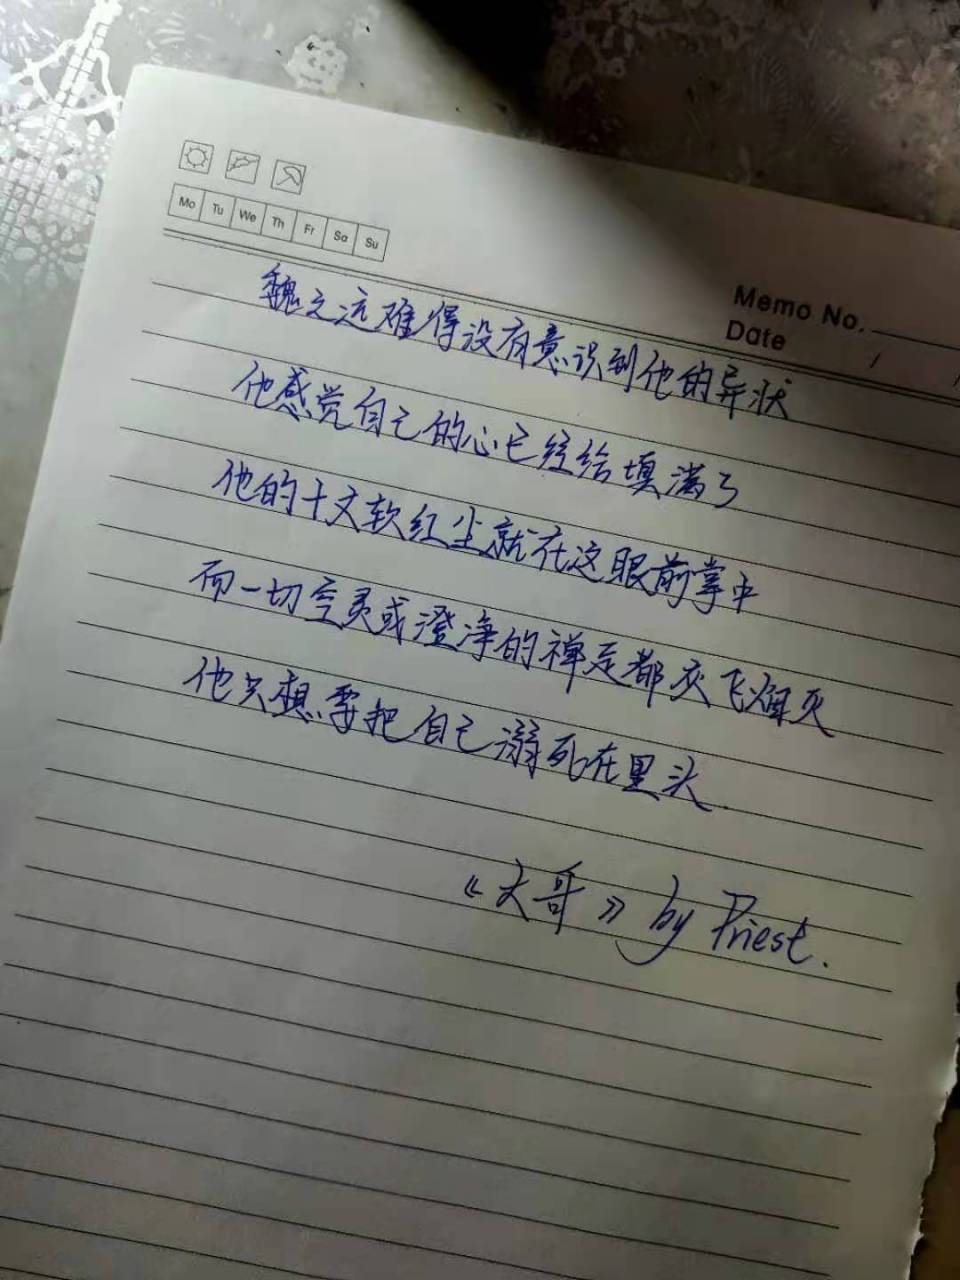 Mo Tu We Th Fr Sa Su
Memo No.
Date / /
魏之远难得没有意识到他的异状
他感觉自己的心已经给填满了
他的十丈软红尘就在这眼前掌中
而一切空灵或澄净的禅定都灰飞烟灭
他只想要把自己溺死在里头
《大哥》by Priest.